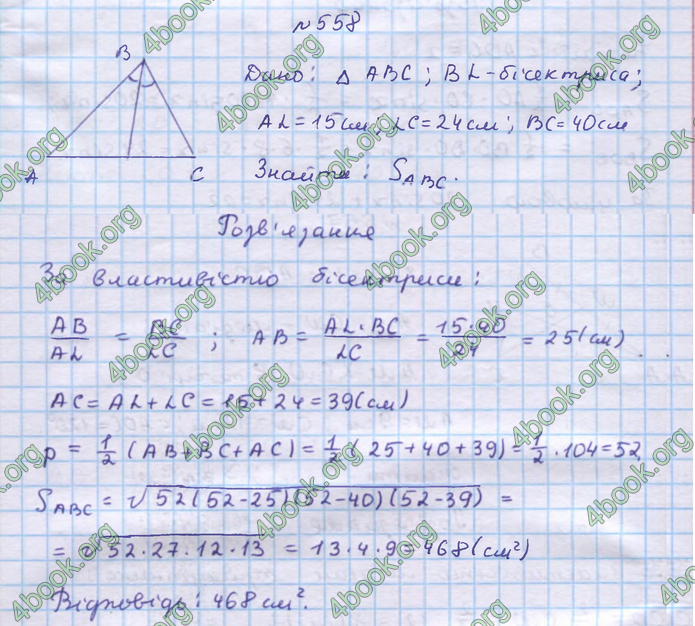 №558
B
Дано: △ ABC; BL-бісектриса;
AL=15см; LC=24см; BC=40см
A
C
Знайти: S_ABC.
Розв'язання
За властивістю бісектриси:
AB/AL = BC/LC; AB = AL·BC/LC = 15·40/24 = 25(см)
AC = AL+LC = 15+24 = 39(см)
p = 1/2 (AB+BC+AC) = 1/2 (25+40+39) = 1/2 · 104 = 52
S_ABC = √52(52-25)(52-40)(52-39) =
= √52·27·12·13 = 13·4·9 = 468(см²)
Відповідь: 468см².
4book.org